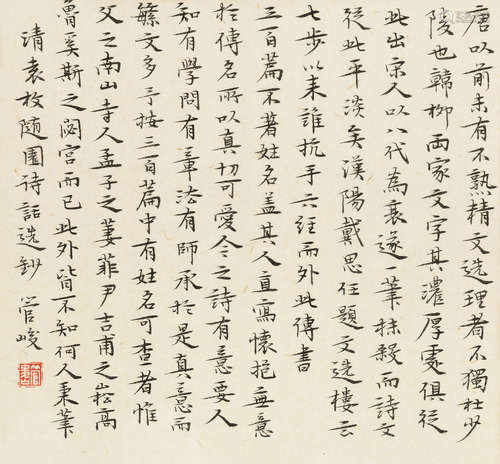 唐以前未有不熟精文選理者不獨杜少
陵也韓柳兩家文字其濃厚處俱從
此出宋人以八代為衰遂一筆抹殺而詩文
從此平淡矣漢陽戴思任題文選樓云
七步以來誰抗手六經而外此傳書
三百篇不著姓名蓋其人直寫懷抱無意
於傳名所以真切可愛今之詩有意要人
知有學問有章法有師承於是真意而
緐文多予按三百篇中有姓名可查者惟
父之南山寺人孟子之萋菲尹吉甫之崧高
魯奚斯之閟宮而已此外皆不知何人秉筆
清袁枚隨園詩話選鈔 管峻